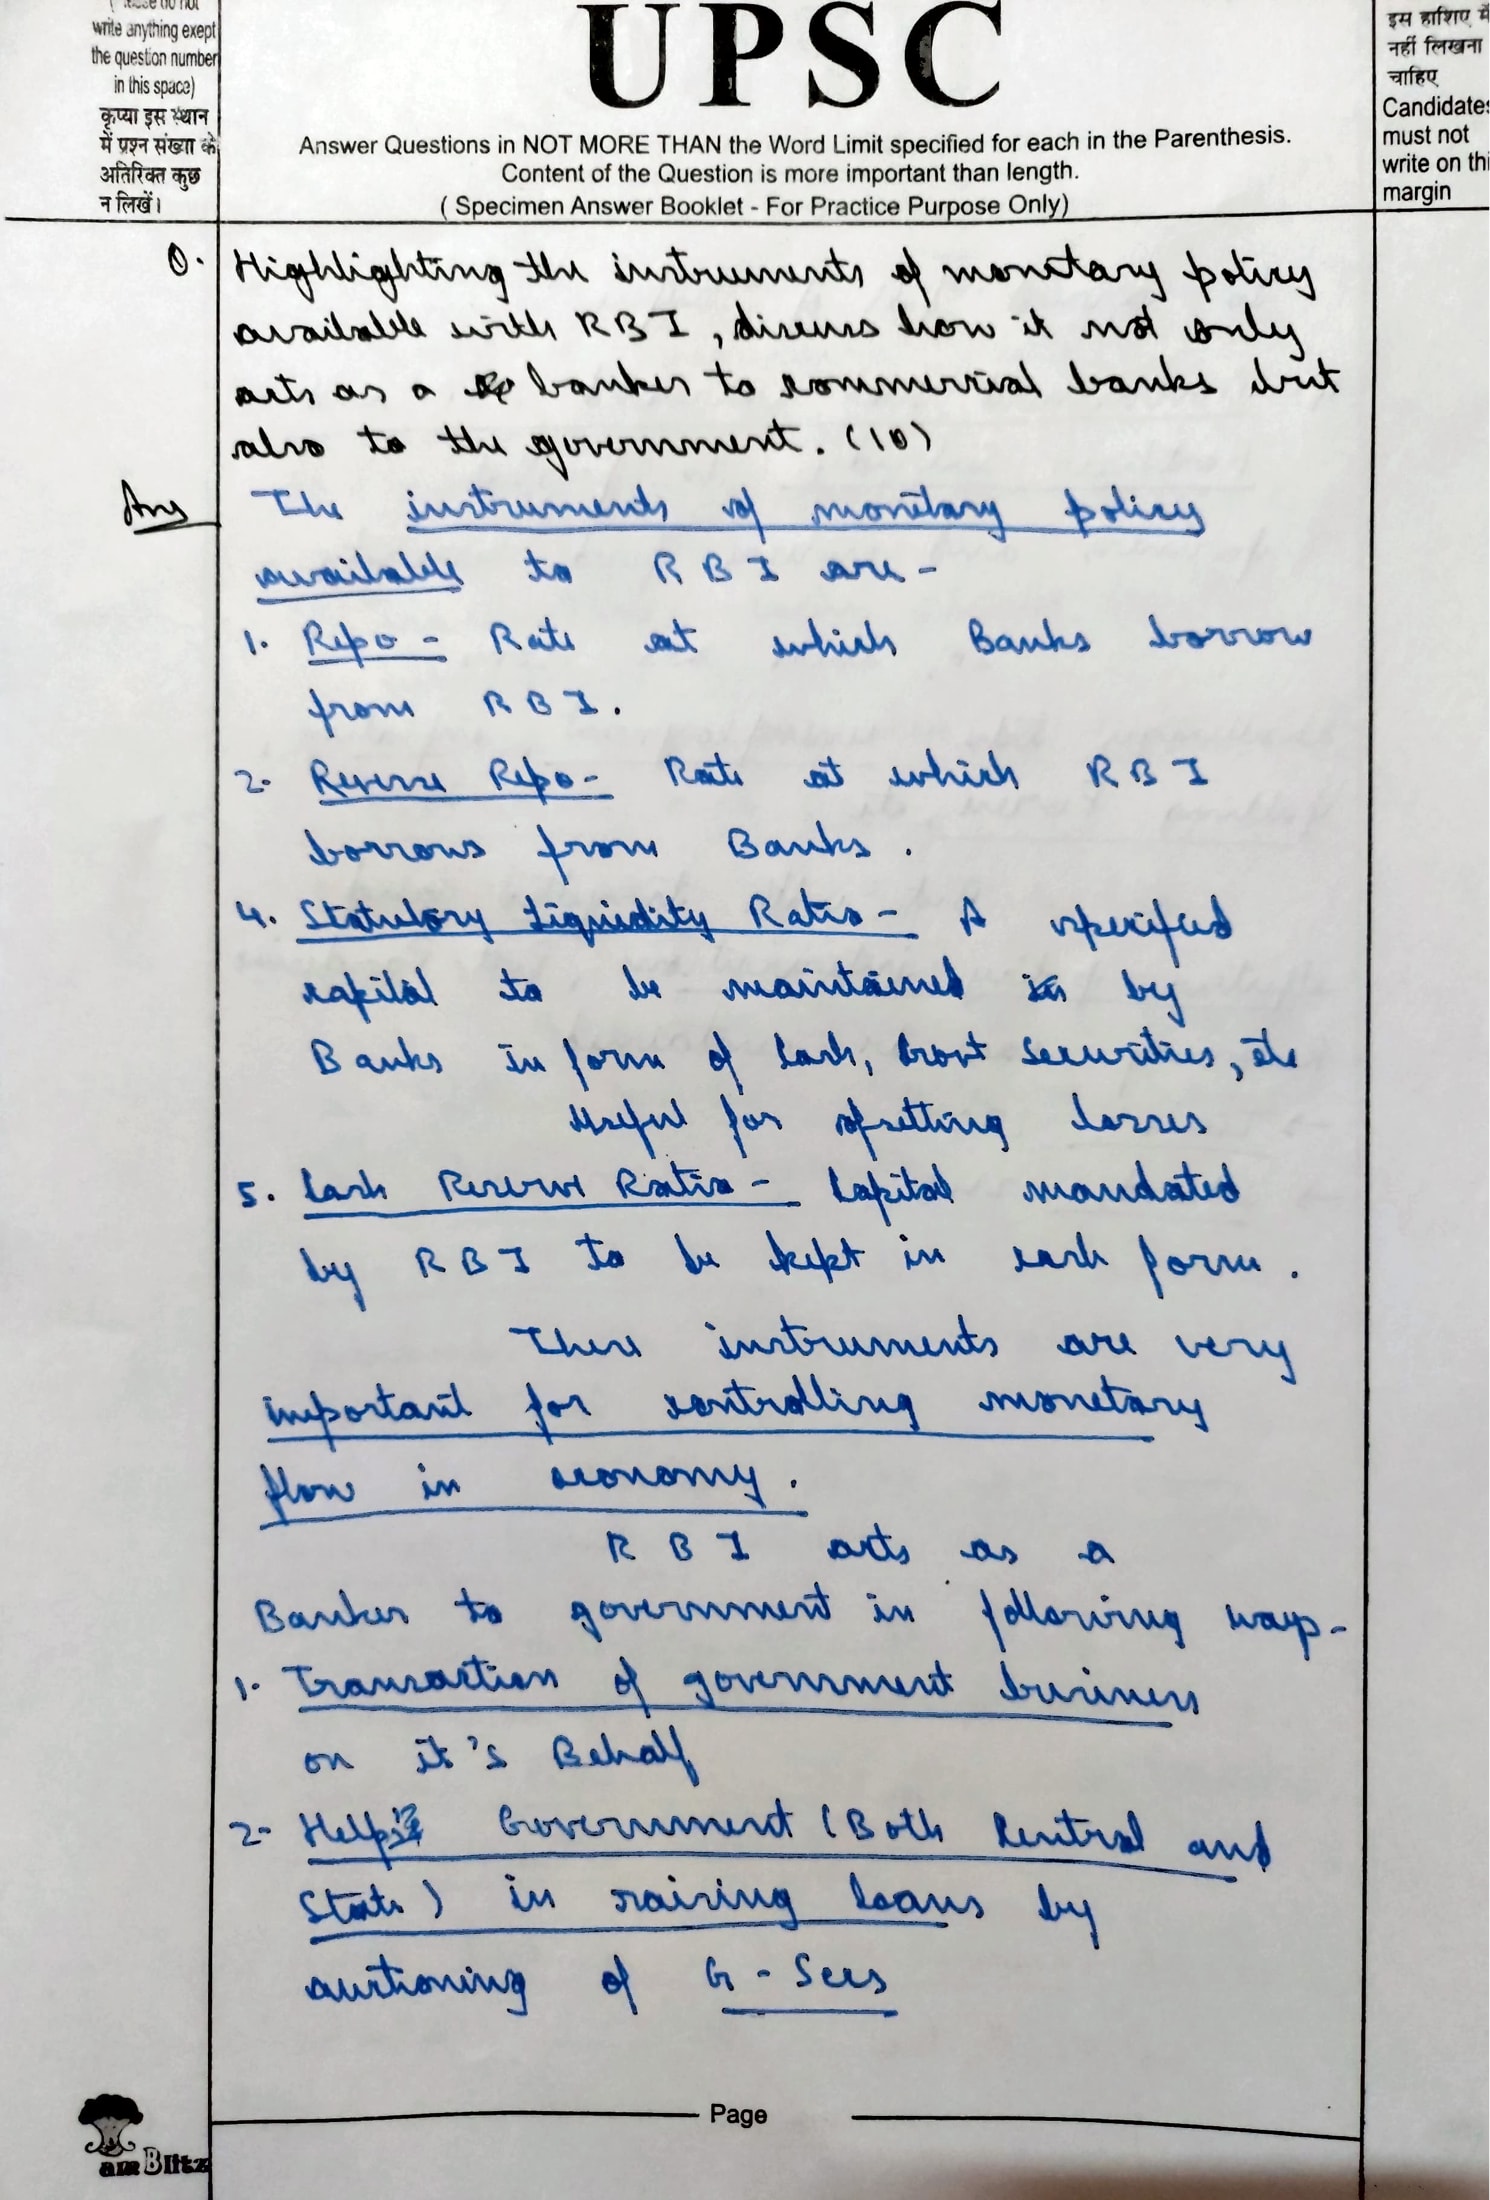 (Please do not
write anything exept
the question number
in this space)
कृप्या इस स्थान
में प्रश्न संख्या के
अतिरिक्त कुछ
न लिखें।
UPSC
Answer Questions in NOT MORE THAN the Word Limit specified for each in the Parenthesis.
Content of the Question is more important than length.
( Specimen Answer Booklet - For Practice Purpose Only)
इस हाशिए में
नहीं लिखना
चाहिए
Candidates
must not
write on this
margin
Q. Highlighting the instruments of monetary policy
available with RBI, discuss how it not only
acts as a banker to commercial banks but
also to the government. (10)
Ans The instruments of monetary policy
available to RBI are -
1. Repo - Rate at which Banks borrow
from RBI.
2. Reverse Repo - Rate at which RBI
borrows from Banks.
4. Statutory Liquidity Ratio - A specified
capital to be maintained by
Banks in form of Cash, Govt Securities, etc
Useful for ofsetting losses
5. Cash Reserve Ratio - Capital mandated
by RBI to be kept in cash form.
These instruments are very
important for controlling monetary
flow in economy.
RBI acts as a
Banker to government in following ways-
1. Transaction of government business
on it's Behalf
2- Helps Government (Both Central and
State) in raising loans by
auctioning of G-Secs
Page
am Blitz